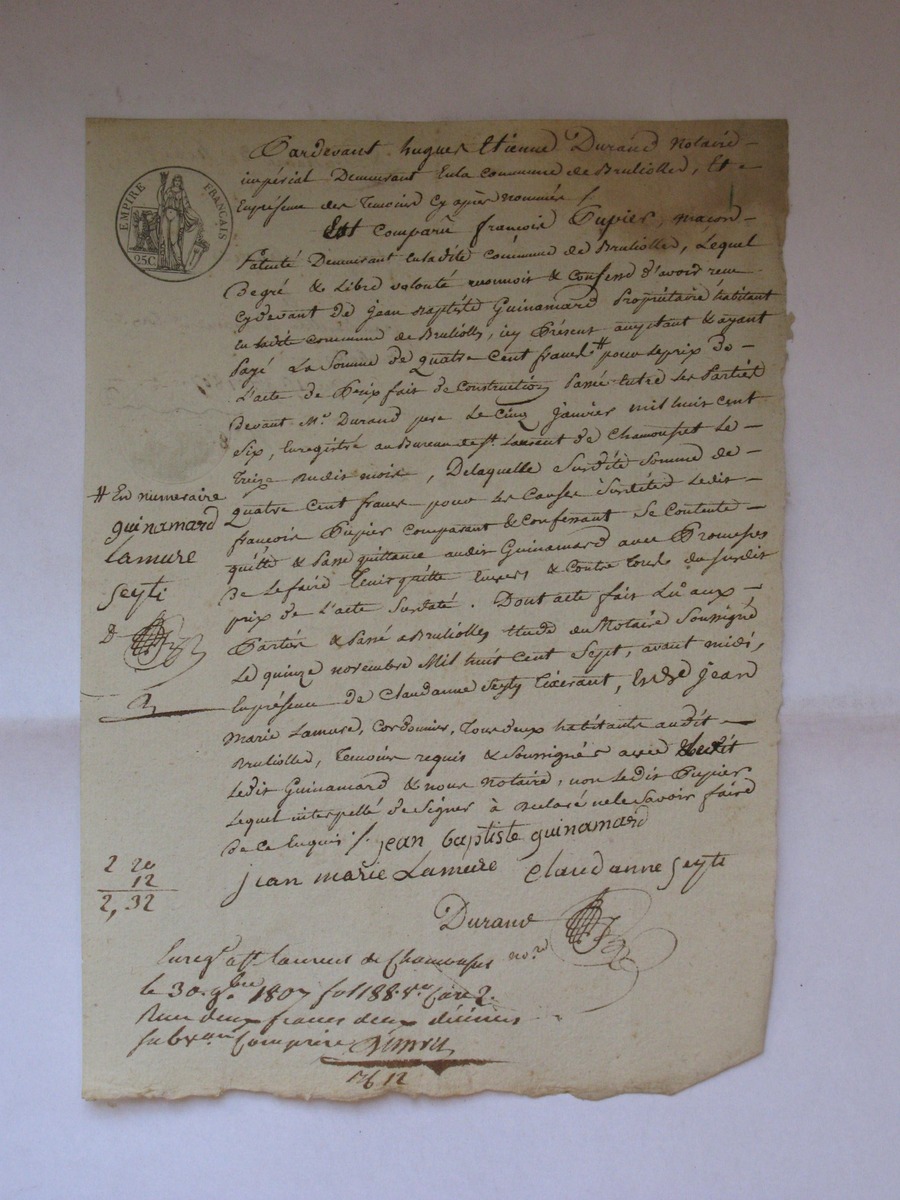 EMPIRE FRANÇAIS
25C
Pardevant hugues Etienne Durand Notaire
impérial Demeurant Enla commune de Brulioles, Et
Enpresence des Temoins Cy après nommés
Est comparu françois Pupier, maçon
Patenté Demeurant enladite commune de Brulioles, Lequel
De gré & Libre volonté reconnois & confesse d'avoir recu
cydevant de jean Baptiste Guinamard Propriétaire habitant
en ladite commune de Brulioles, icy Présent acceptant & ayant
Payé La Somme de quatre Cent francs # pour leprix de
L'acte de Prix fait de Construction Passé Entre Les Parties
Devant Me. Durand pere Le Cinq janvier mil huit cent
Six, Enregistré au Bureau de St. Laurent de Chamousset Le
Treize dudit mois, Delaquelle Susdite Somme de
quatre Cent francs pour Les Causes Susdites Ledit
françois Pupier comparant & confessant Se Contente
quitte & Passe quittance audit Guinamard avec Promesses
De Le faire Tenir quitte Envers & Contre Tous du Susdit
prix de L'acte Susdaté. Dont acte fait Lu aux
Parties & Passé a Brulioles Etude du Notaire Soussigné
Le quinze novembre Mil huit Cent Sept, avant midi,
Enprésence de Claudanne Seyty Tixerant, Et de jean
Marie Lamure, Cordonnier, Tous deux habitants audit
Brulioles, Temoins requis & Soussignés avec
Ledit Guinamard & nous Notaire, non Ledit Pupier
Lequel interpellé de Signer à declaré ne le Savoir faire
De ce Enquis
# En numeraire
guinamard
lamure
seyti
D
jean baptiste guinamard
jean marie Lamure claudanne Seyti
Durand
no.re
2 20
12
2, 32
Enreg. a St. laurent de Chamousset
le 30. 9bre 1807 fol 188. Vo. Case 2.
Recu deux francs deux décimes
subvon Comprise